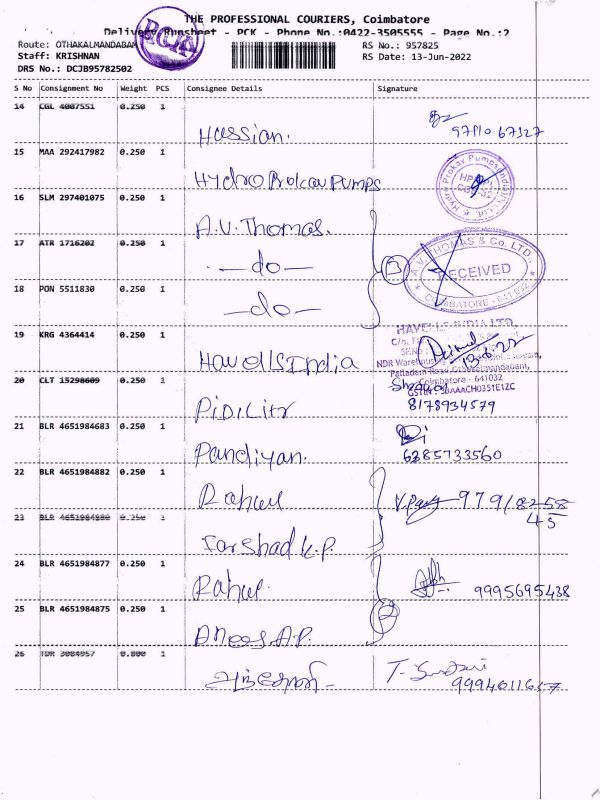 THE PROFESSIONAL COURIERS, Coimbatore
Delivery Runsheet - PCK - Phone No.:0422-3505555 - Page No.:2
Route: OTHAKALMANDABAM
RS No.: 957825
Staff: KRISHNAN
RS Date: 13-Jun-2022
DRS No.: DCJB95782502
PCK
S No Consignment No Weight PCS Consignee Details Signature
14 CGL 4087551 0.250 1
Hussian.
97910 67127
15 MAA 292417982 0.250 1
Hydro Prokav Pumps
16 SLM 297401075 0.250 1
A.V. Thomas.
17 ATR 1716202 0.250 1
—do—
A.V. THOMAS & Co. LTD.,
RECEIVED
COIMBATORE - 641 032
18 PON 5511830 0.250 1
—do—
19 KRG 4364414 0.250 1
HAVELLS INDIA LTD.
Havells India
13-6-22
NDR Warehousing
Palladam Road, Othakalmandabam,
Coimbatore - 641032
20 CLT 15298609 0.250 1
Pidilitr
8178934579
21 BLR 4651984683 0.250 1
Pandiyan.
6385733560
22 BLR 4651984882 0.250 1
Rahul
97918258
45
23 BLR 4651984880 0.250 1
Farshad K.P.
24 BLR 4651984877 0.250 1
Rahul.
9995695438
25 BLR 4651984875 0.250 1
Anees A.P.
26 TDR 3084957 0.800 1